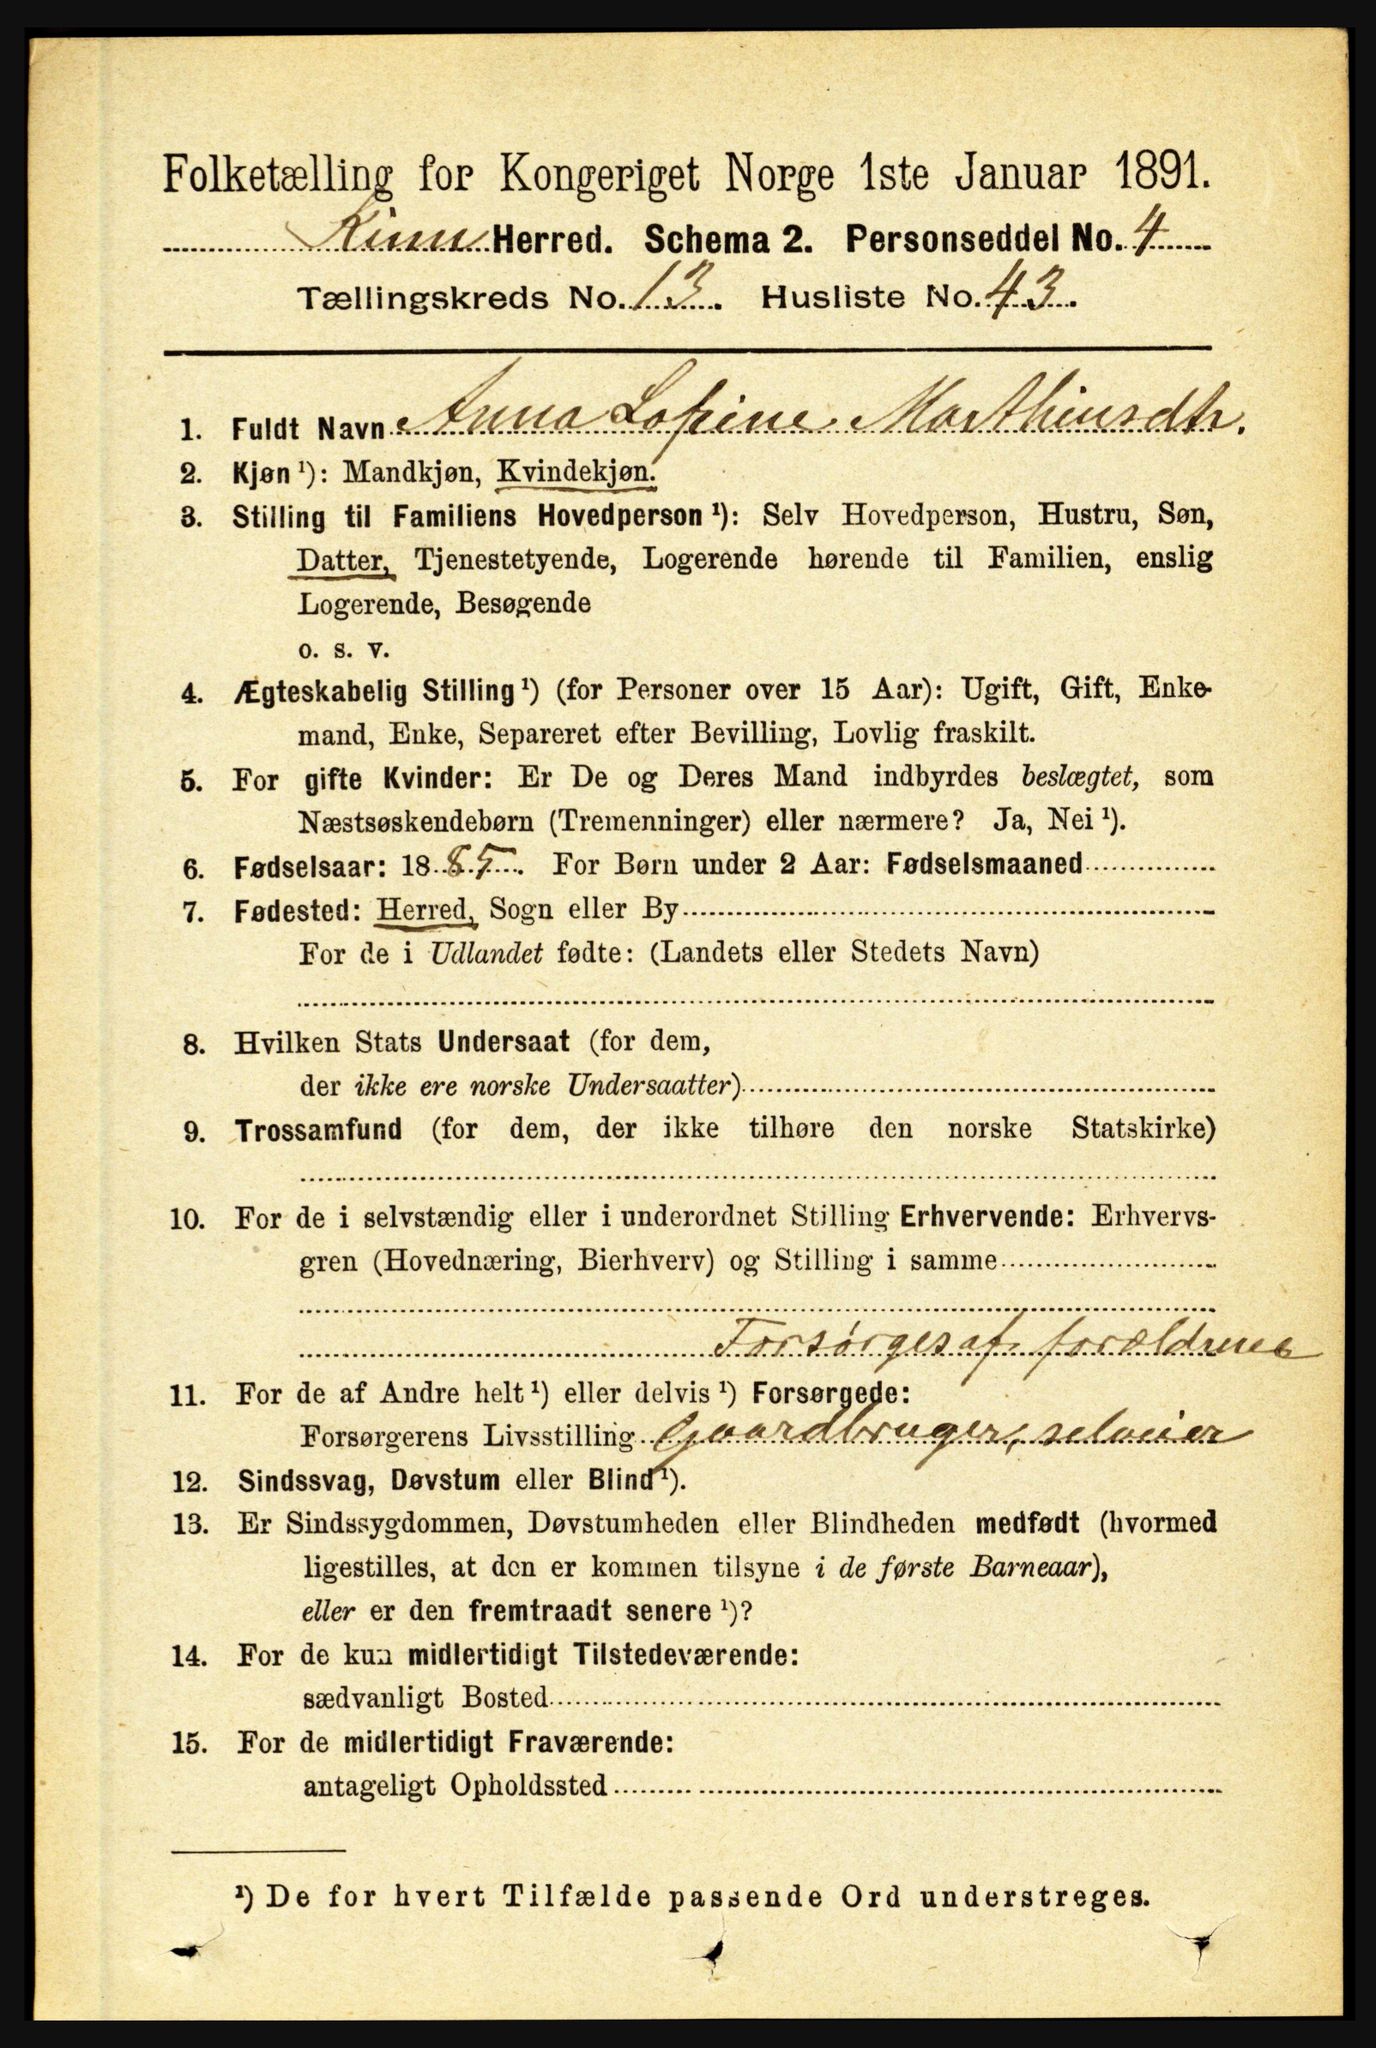 Folketælling for Kongeriget Norge 1ste Januar 1891.
Kinn Herred. Schema 2. Personseddel No. 4
Tællingskreds No. 13. Husliste No. 43.
1. Fuldt Navn Anna Lofine Marthinsdtr.
2. Kjøn ¹): Mandkjøn, Kvindekjøn.
3. Stilling til Familiens Hovedperson ¹): Selv Hovedperson, Hustru, Søn,
Datter, Tjenestetyende, Logerende hørende til Familien, enslig
Logerende, Besøgende
o. s. v.
4. Ægteskabelig Stilling ¹) (for Personer over 15 Aar): Ugift, Gift, Enke-
mand, Enke, Separeret efter Bevilling, Lovlig fraskilt.
5. For gifte Kvinder: Er De og Deres Mand indbyrdes beslægtet, som
Næstsøskendebørn (Tremenninger) eller nærmere? Ja, Nei ¹).
6. Fødselsaar: 1885. For Børn under 2 Aar: Fødselsmaaned
7. Fødested: Herred, Sogn eller By
For de i Udlandet fødte: (Landets eller Stedets Navn)
8. Hvilken Stats Undersaat (for dem,
der ikke ere norske Undersaatter)
9. Trossamfund (for dem, der ikke tilhøre den norske Statskirke)
10. For de i selvstændig eller i underordnet Stilling Erhvervende: Erhvervs-
gren (Hovednæring, Bierhverv) og Stilling i samme
Forsørges af forældrene
11. For de af Andre helt ¹) eller delvis ¹) Forsørgede:
Forsørgerens Livsstilling Gaardbruger, selveier
12. Sindssvag, Døvstum eller Blind ¹).
13. Er Sindssygdommen, Døvstumheden eller Blindheden medfødt (hvormed
ligestilles, at den er kommen tilsyne i de første Barneaar),
eller er den fremtraadt senere ¹)?
14. For de kun midlertidigt Tilstedeværende:
sædvanligt Bosted
15. For de midlertidigt Fraværende:
antageligt Opholdssted
¹) De for hvert Tilfælde passende Ord understreges.